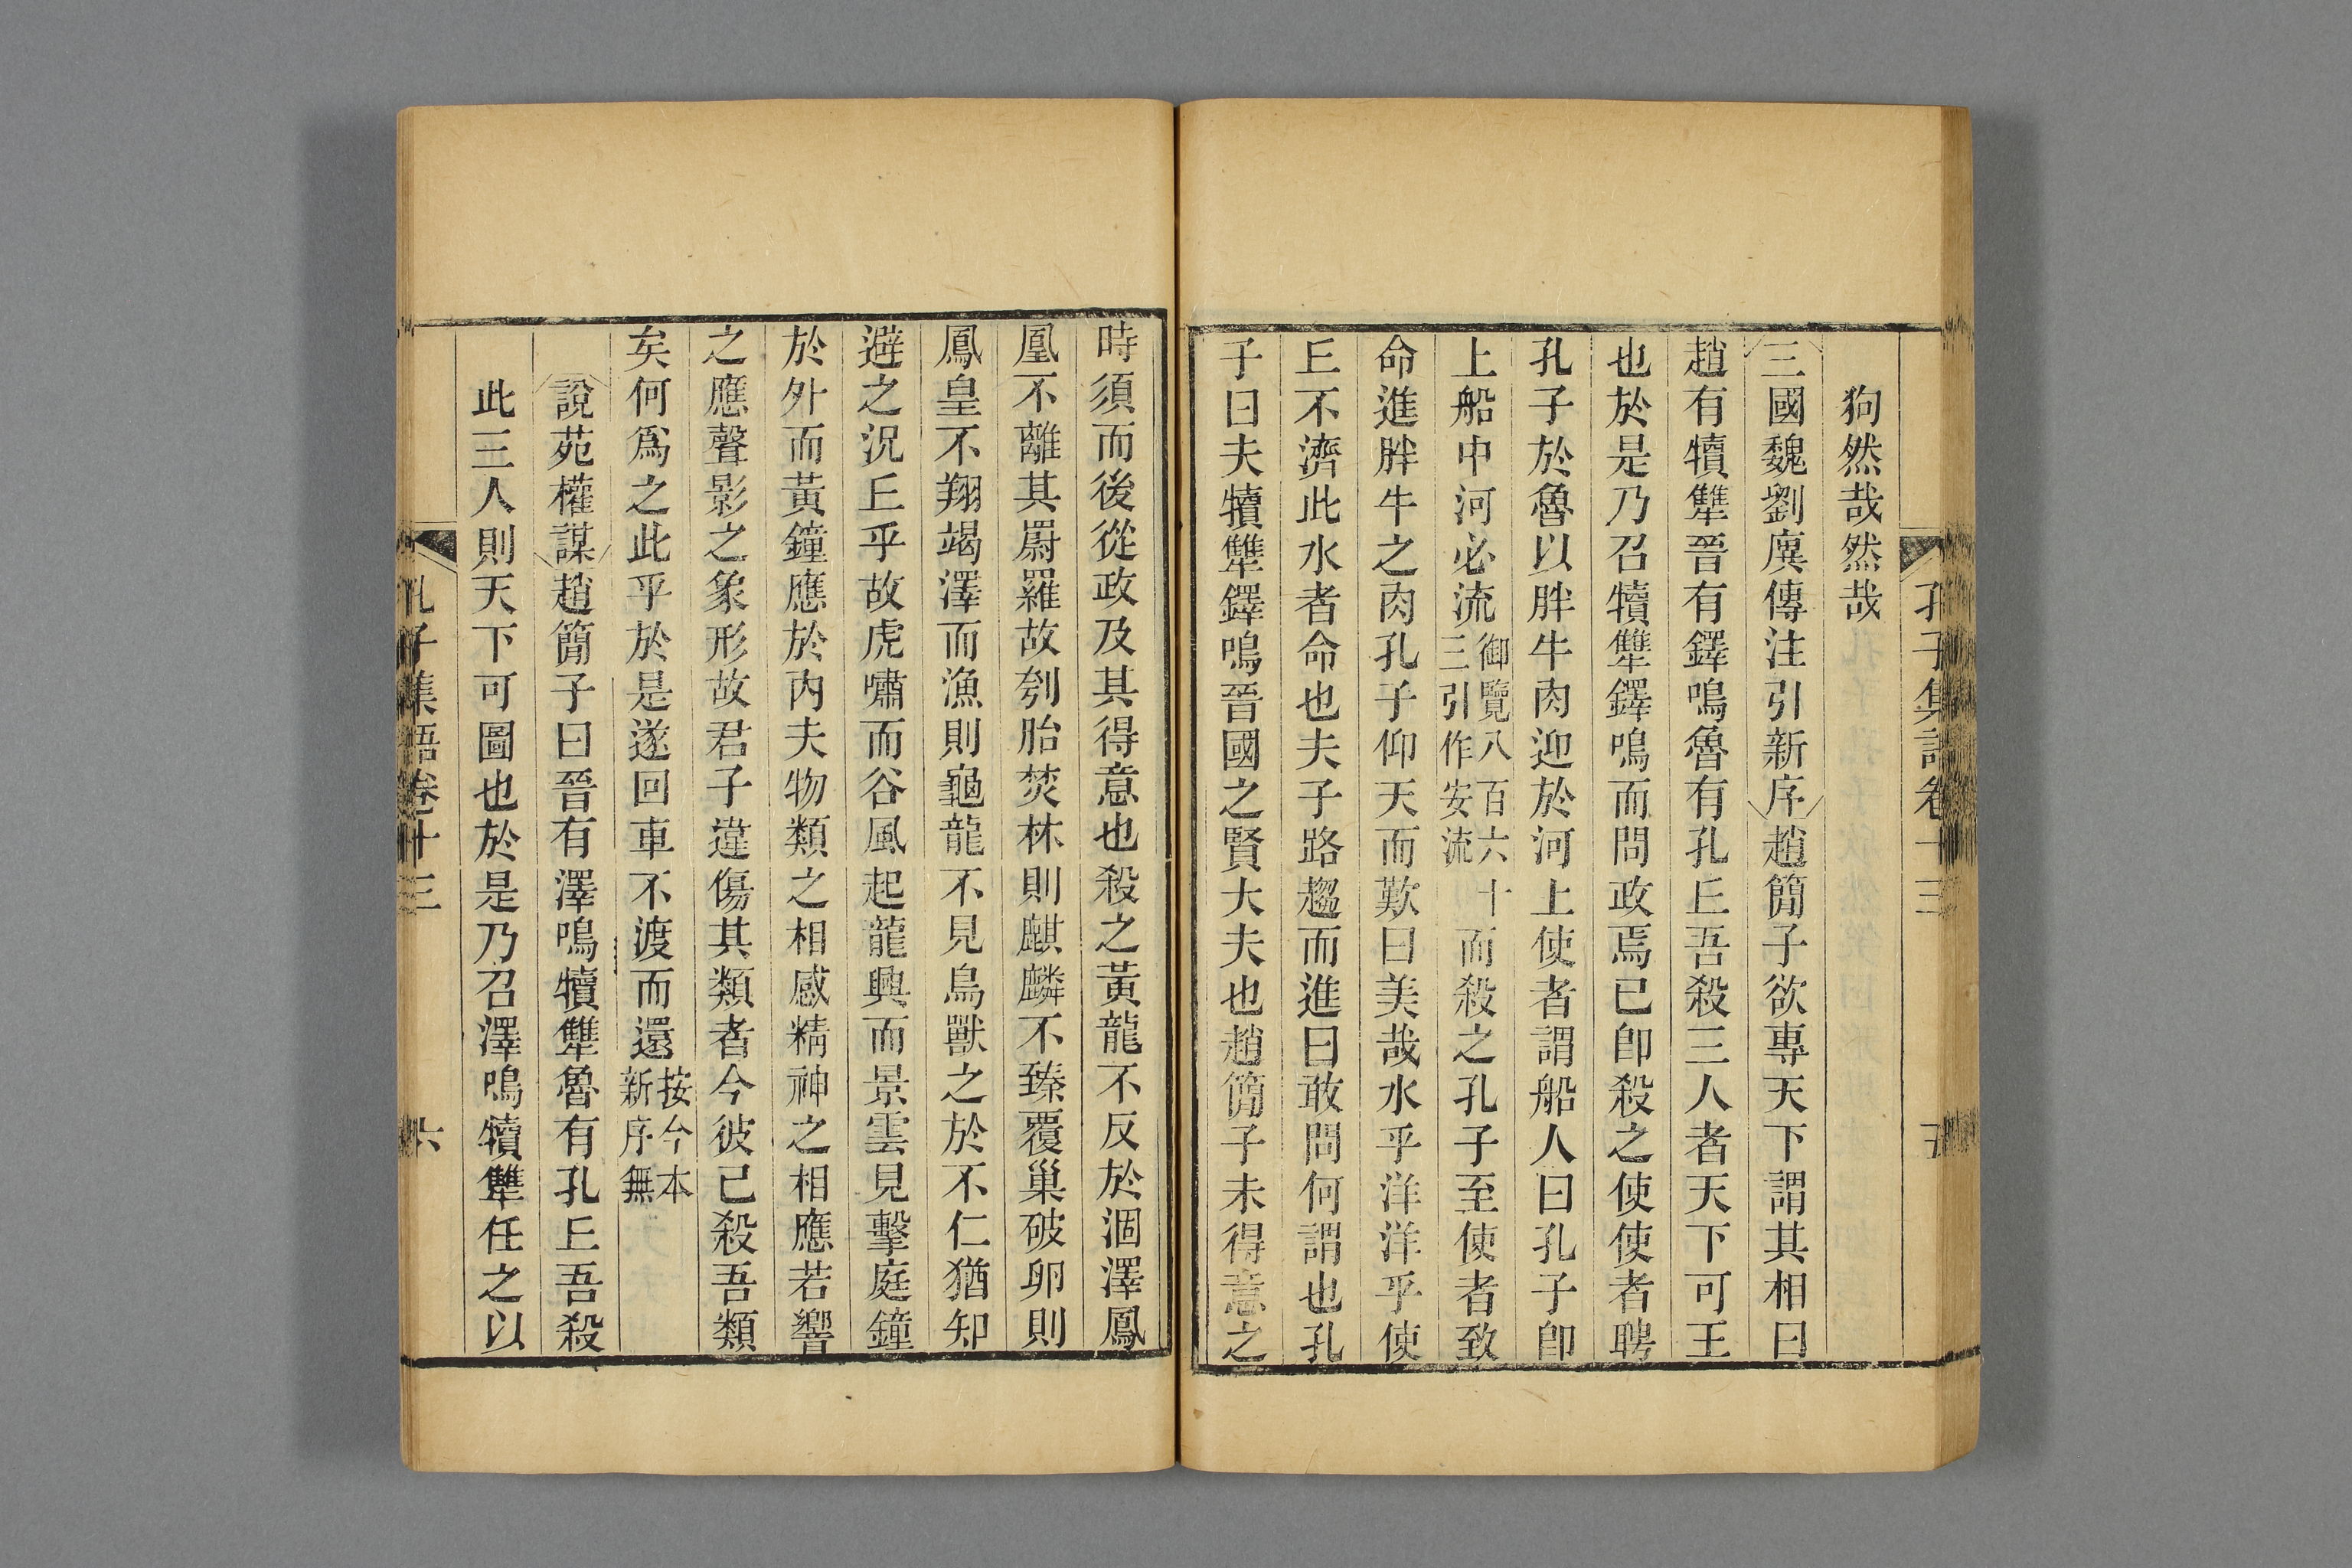 孔子集語卷十三 五
狗然哉然哉
三國魏劉廙傳注引新序趙簡子欲專天下謂其相曰
趙有犢犨晉有鐸鳴魯有孔丘吾殺三人者天下可王
也於是乃召犢犨鐸鳴而問政焉已卽殺之使使者聘
孔子於魯以胖牛肉迎於河上使者謂船人曰孔子卽
上船中河必流御覽八百六十三引作安流而殺之孔子至使者致
命進胖牛之肉孔子仰天而歎曰美哉水乎洋洋乎使
丘不濟此水者命也夫子路趨而進曰敢問何謂也孔
子曰夫犢犨鐸鳴晉國之賢大夫也趙簡子未得意之
時須而後從政及其得意也殺之黃龍不反於涸澤鳳
凰不離其罻羅故刳胎焚林則麒麟不臻覆巢破卵則
鳳皇不翔竭澤而漁則龜龍不見鳥獸之於不仁猶知
避之況丘乎故虎嘯而谷風起龍興而景雲見擊庭鐘
於外而黃鐘應於內夫物類之相感精神之相應若響
之應聲影之象形故君子違傷其類者今彼已殺吾類
矣何爲之此乎於是遂回車不渡而還按今本新序無
說苑權謀趙簡子曰晉有澤鳴犢犨魯有孔丘吾殺
此三人則天下可圖也於是乃召澤鳴犢犨任之以
孔子集語卷十三 六